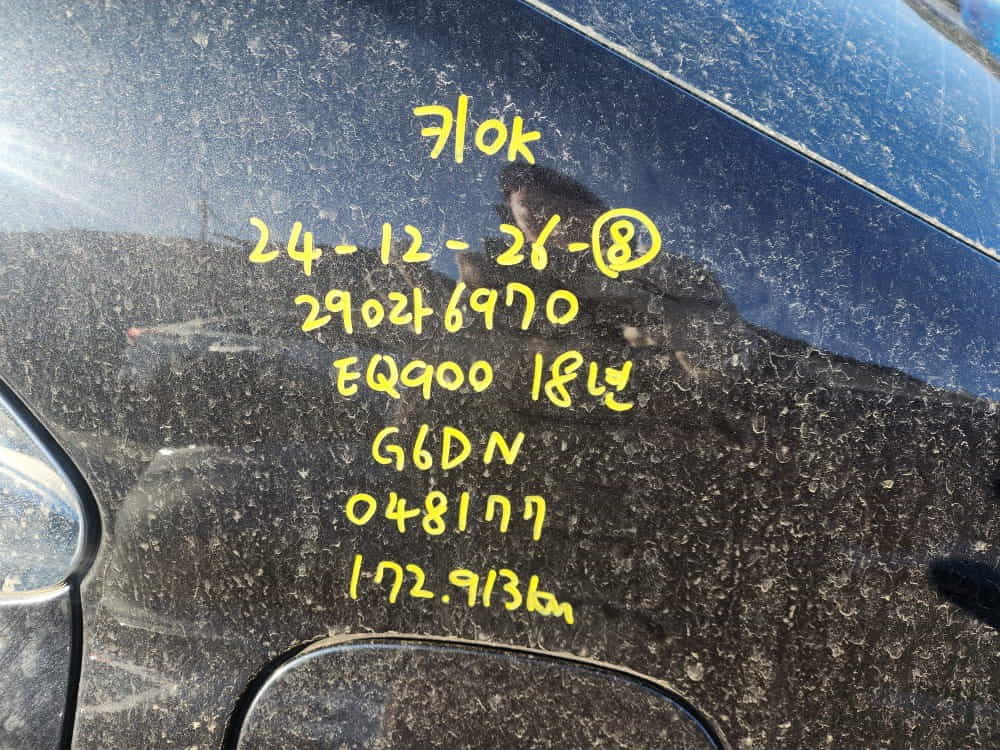 키OK
24-12-26-⑧
29라6970
EQ900 18년
G6DN
048177
172.913km